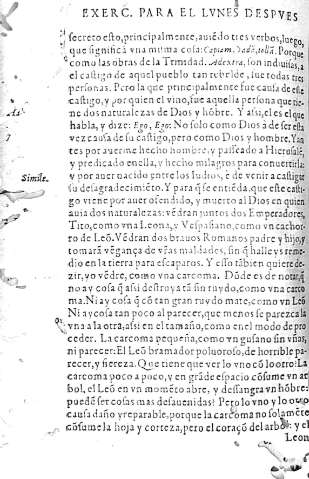 EXERC. PARA EL LVNES DESPVES
secreto esto, principalmente, auiēdo tres verbos, luego,
que significā vna misma cosa: Capiam, Vadā, tollā. Porque
como las obras de la Trinidad. Adextra, son indiuisas, a
el castigo de aquel pueblo tan rebelde, fue todas tres
personas. Pero la que principalmente fue causa de este
castigo, y por quien el vino, fue aquella persona que tie-
ne dos naturalezas de Dios y Hōbre. Y assi, el es el que
habla, y dize: Ego, Ego: No solo como Dios à de ser esta
vez causa de su castigo, pero como Dios y hombre. Y an-
tes por auerme hecho hombre, y passeado a Hierusalē,
y predicado en ella, y hecho milagros para conuertirla:
y por auer nacido entre los Iudios, è de venir a castigar
su desagradecimiēto. Y para q̄ se entiēda, que este casti-
go viene por auer ofendido, y muerto al Dios en quien
auia dos naturalezas: vēdran juntos dos Emperadores,
Simile.
Tito, como vna Leona, y Vespasiano, como vn cachor-
ro de Leō. Vēdran dos brauos Romanos padre y hijo, y
tomarā vēgança de vr̄as maldades, sin q̄ halleys reme-
dio en la tierra para escaparos. Y esso tābien quiere de-
zir, yo vēdre, como vna carcoma. Dōde es de notar, q̄
no ay cosa q̄ assi destroya tā sin ruydo, como vna carco
ma. Ni ay cosa q̄ cō tan gran ruydo mate, como vn Leō
Ni ay cosa tan poco al parecer, que menos se parezca la
vna a la otra, assi en el tamaño, como en el modo de pro
ceder. La carcoma pequeña, como vn gusano sin vñas,
ni parecer: El Leō bramador poluoroso, de horrible pa-
recer, y fiereza. Que tiene que ver lo vno cō lo otro: La
carcoma poco a poco, y en grāde espacio cōsume vn ar
bol, el Leō en vn momēto abre, y dessangra vn hōbre:
puedē ser cosas mas desauenidas! Pero lo vno y lo otro
causa daño yreparable, porque la carcoma no solamēte
cōsume la hoja y corteza, pero el coraçō del arbol: y el
Leon